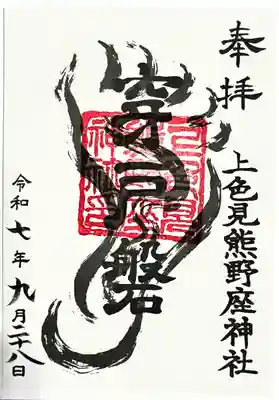 奉拝
上色見熊野座神社
穿戸磐
令和七年九月二十八日